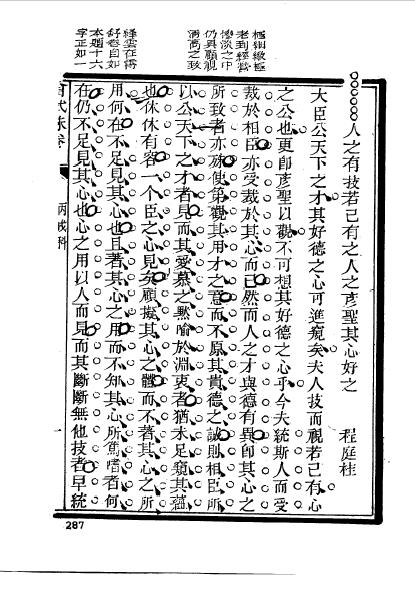 人之有技若己有之人之彥聖其心好之
程庭桂
大臣公天下之才其好德之心可進窺矣夫人技而視若己有心
之公也更卽彥聖以觀不可想其好德之心乎今夫統斯人而受
裁於相臣亦受裁於其心而已然而人之才與德有異卽其心之
所致者亦殊使第觀其用才之意而不原其貴德之誠則相臣所
以公天下之才者見而其愛慕之默喻於淵衷者猶未足窺其蘊
也休休有容一个臣之心見矣顧擬其心之體而不著其心之所
用何在不足見其心也且著其心之用而不知其心所篤嗜者何
在仍不足見其心也心之用以人而見而其斷斷無他技者早統
老到經營
慘淡之中
仍具顧視
清高之致
絳雲在霄
舒卷自如
本題十六
字正如一
丙戌科
一
287